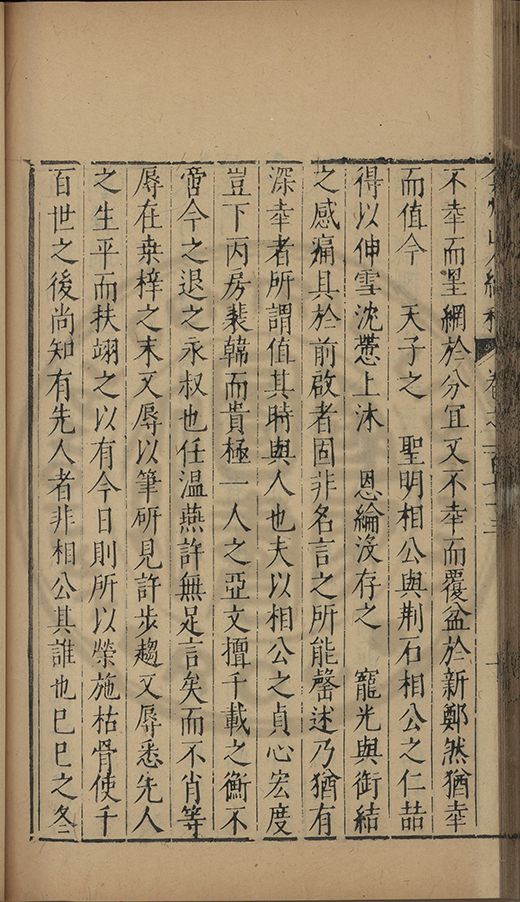 州山人續稿 卷之一百
不幸而罣網於分宜又不幸而覆盆於新鄭然猶幸
而值今 天子之 聖明相公與荆石相公之仁喆
得以伸雪沈上沐 恩綸沒存之 寵光與銜結
之感痛具於前啟者固非名言之所能罄述乃猶有
深幸者所謂值其時與人也夫以相公之貞心宏度
豈下丙房裴韓而貴極一人之亞文擅千載之衡不
啻今之退之永叔也任温燕許無足言矣而不肖等
辱在桒梓之末又辱以筆研見許步趨又辱悉先人
之生平而扶翊之以有今日則所以榮施枯骨使千
百世之後尚知有先人者非相公其誰也巳巳之冬